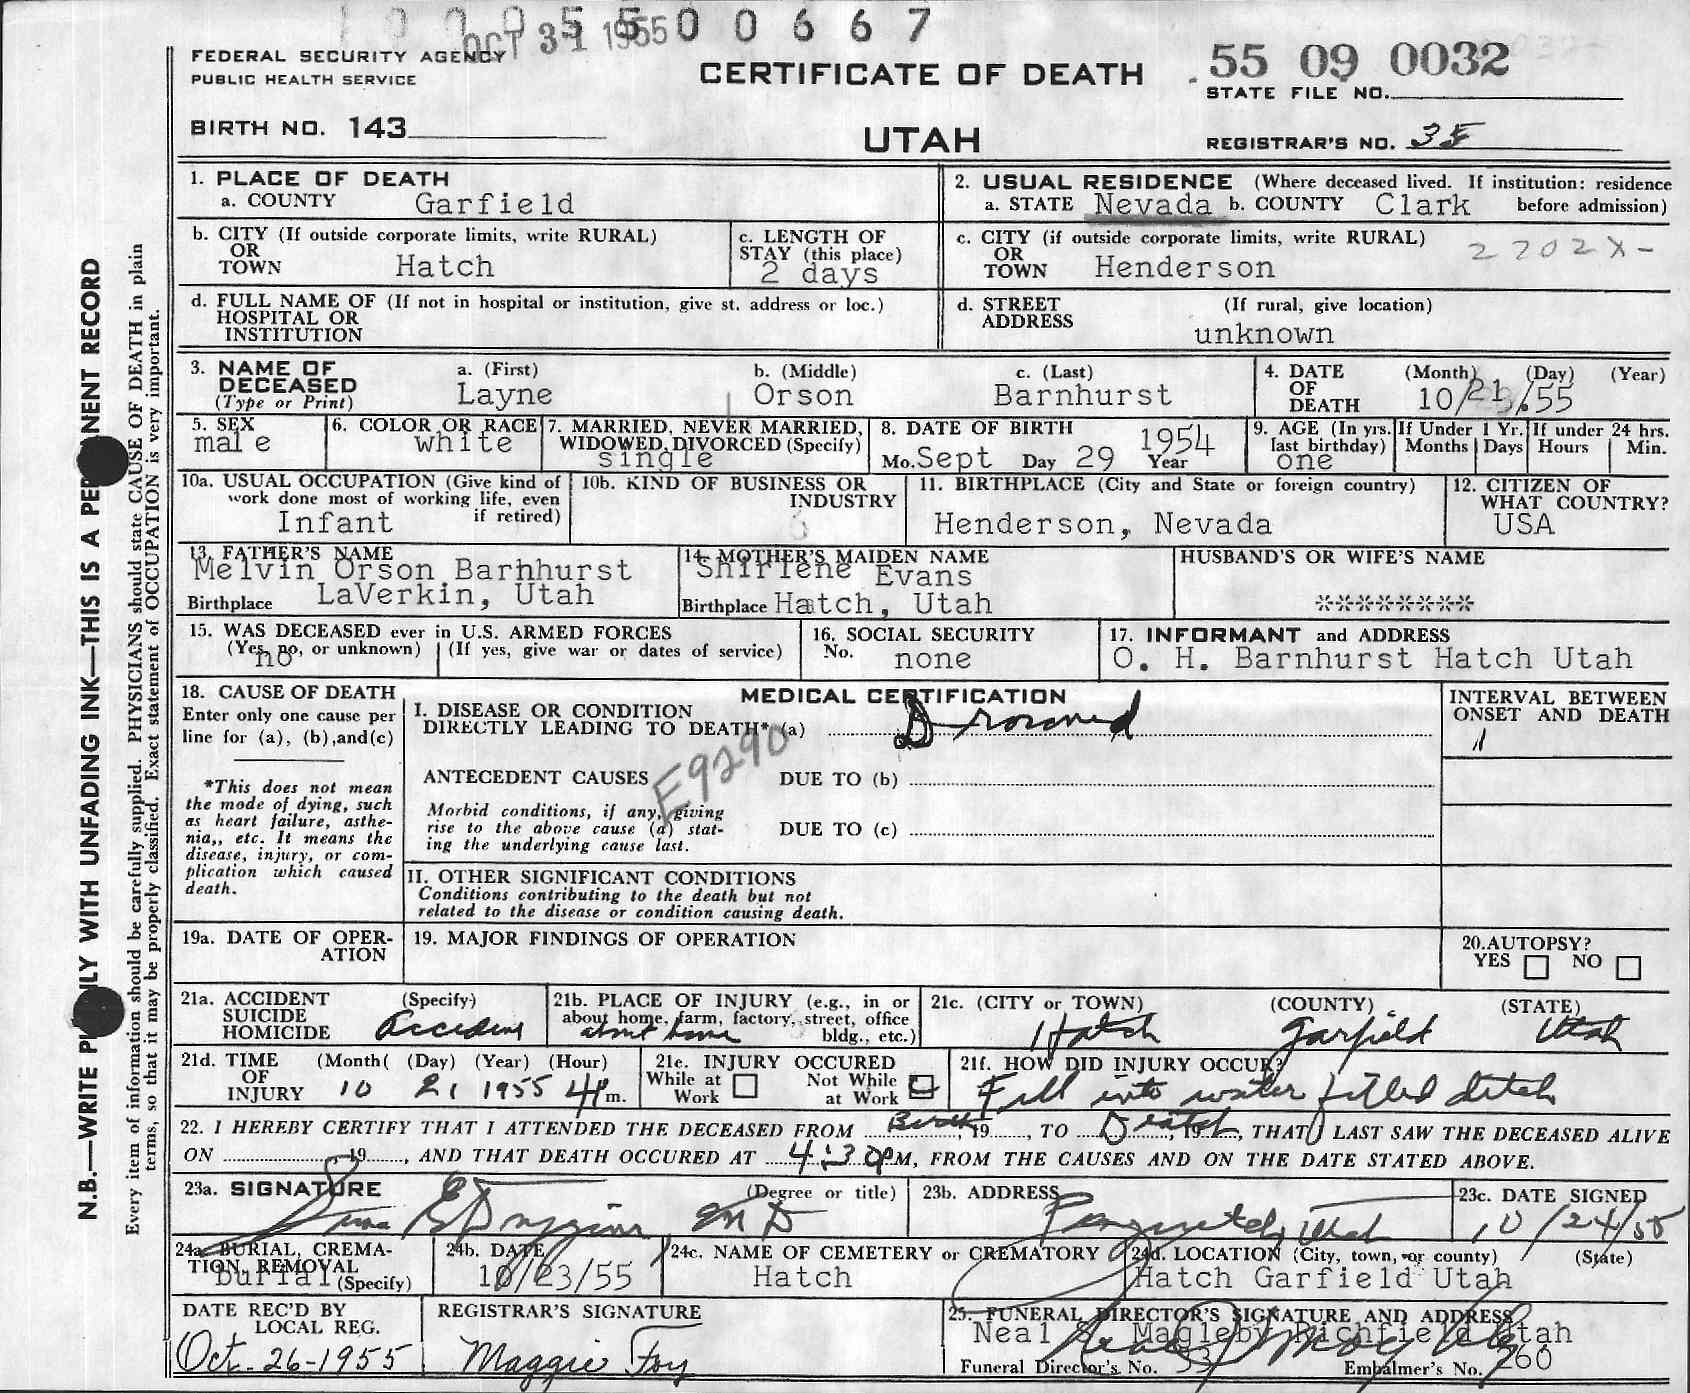 5500667
OCT 31 1955
FEDERAL SECURITY AGENCY
PUBLIC HEALTH SERVICE
CERTIFICATE OF DEATH
55 09 0032
STATE FILE NO.
BIRTH NO. 143
UTAH
REGISTRAR'S NO. 35
1. PLACE OF DEATH
a. COUNTY Garfield
2. USUAL RESIDENCE (Where deceased lived. If institution: residence before admission)
a. STATE Nevada b. COUNTY Clark
b. CITY (If outside corporate limits, write RURAL)
OR
TOWN Hatch
c. LENGTH OF
STAY (this place)
2 days
c. CITY (if outside corporate limits, write RURAL)
OR
TOWN Henderson
2702X-
d. FULL NAME OF (If not in hospital or institution, give st. address or loc.)
HOSPITAL OR
INSTITUTION
d. STREET (If rural, give location)
ADDRESS
unknown
3. NAME OF
DECEASED
(Type or Print)
a. (First) b. (Middle) c. (Last)
Layne Orson Barnhurst
4. DATE (Month) (Day) (Year)
OF
DEATH 10/21/55
5. SEX
male
6. COLOR OR RACE
white
7. MARRIED, NEVER MARRIED,
WIDOWED, DIVORCED (Specify)
single
8. DATE OF BIRTH
Mo. Sept Day 29 1954 Year
9. AGE (In yrs. last birthday)
one
If Under 1 Yr. If under 24 hrs.
Months Days Hours Min.
10a. USUAL OCCUPATION (Give kind of
work done most of working life, even
if retired)
Infant
10b. KIND OF BUSINESS OR
INDUSTRY
11. BIRTHPLACE (City and State or foreign country)
Henderson, Nevada
12. CITIZEN OF
WHAT COUNTRY?
USA
13. FATHER'S NAME
Melvin Orson Barnhurst
Birthplace LaVerkin, Utah
14. MOTHER'S MAIDEN NAME
Shirlene Evans
Birthplace Hatch, Utah
HUSBAND'S OR WIFE'S NAME
********
15. WAS DECEASED ever in U.S. ARMED FORCES
(Yes, no, or unknown) (If yes, give war or dates of service)
no
16. SOCIAL SECURITY
No. none
17. INFORMANT and ADDRESS
O. H. Barnhurst Hatch Utah
18. CAUSE OF DEATH
Enter only one cause per
line for (a), (b), and (c)
*This does not mean
the mode of dying, such
as heart failure, asthe-
nia,, etc. It means the
disease, injury, or com-
plication which caused
death.
MEDICAL CERTIFICATION
I. DISEASE OR CONDITION
DIRECTLY LEADING TO DEATH* (a) Drowned
E9290
ANTECEDENT CAUSES DUE TO (b)
Morbid conditions, if any, giving
rise to the above cause (a) stat-
ing the underlying cause last.
DUE TO (c)
II. OTHER SIGNIFICANT CONDITIONS
Conditions contributing to the death but not
related to the disease or condition causing death.
INTERVAL BETWEEN
ONSET AND DEATH
19a. DATE OF OPER-
ATION
19. MAJOR FINDINGS OF OPERATION
20. AUTOPSY?
YES NO
21a. ACCIDENT (Specify)
SUICIDE
HOMICIDE Accident
21b. PLACE OF INJURY (e.g., in or
about home, farm, factory, street, office
bldg., etc.)
about home
21c. (CITY or TOWN) (COUNTY) (STATE)
Hatch Garfield Utah
21d. TIME (Month( (Day) (Year) (Hour)
OF
INJURY 10 21 1955 4 p m.
21e. INJURY OCCURED
While at Work Not While at Work
21f. HOW DID INJURY OCCUR?
Fell into water filled ditch
22. I HEREBY CERTIFY THAT I ATTENDED THE DECEASED FROM Birth, 19, TO Death, 19, THAT I LAST SAW THE DECEASED ALIVE
ON 19, AND THAT DEATH OCCURED AT 4:30 PM, FROM THE CAUSES AND ON THE DATE STATED ABOVE.
23a. SIGNATURE (Degree or title)
M D
23b. ADDRESS
Panguitch, Utah
23c. DATE SIGNED
10/24/55
24a. BURIAL, CREMA-
TION, REMOVAL
(Specify)
burial
24b. DATE
10/23/55
24c. NAME OF CEMETERY or CREMATORY
Hatch
24d. LOCATION (City, town, or county) (State)
Hatch Garfield Utah
DATE REC'D BY
LOCAL REG.
Oct. 26-1955
REGISTRAR'S SIGNATURE
Maggie Foy
25. FUNERAL DIRECTOR'S SIGNATURE AND ADDRESS
Neal S. Magleby Richfield Utah
Funeral Director's. No. 33 Embalmer's No. 260
N.B.—WRITE PLAINLY WITH UNFADING INK—THIS IS A PERMANENT RECORD
Every item of information should be carefully supplied. PHYSICIANS should state CAUSE OF DEATH in plain
terms, so that it may be properly classified. Exact statement of OCCUPATION is very important.